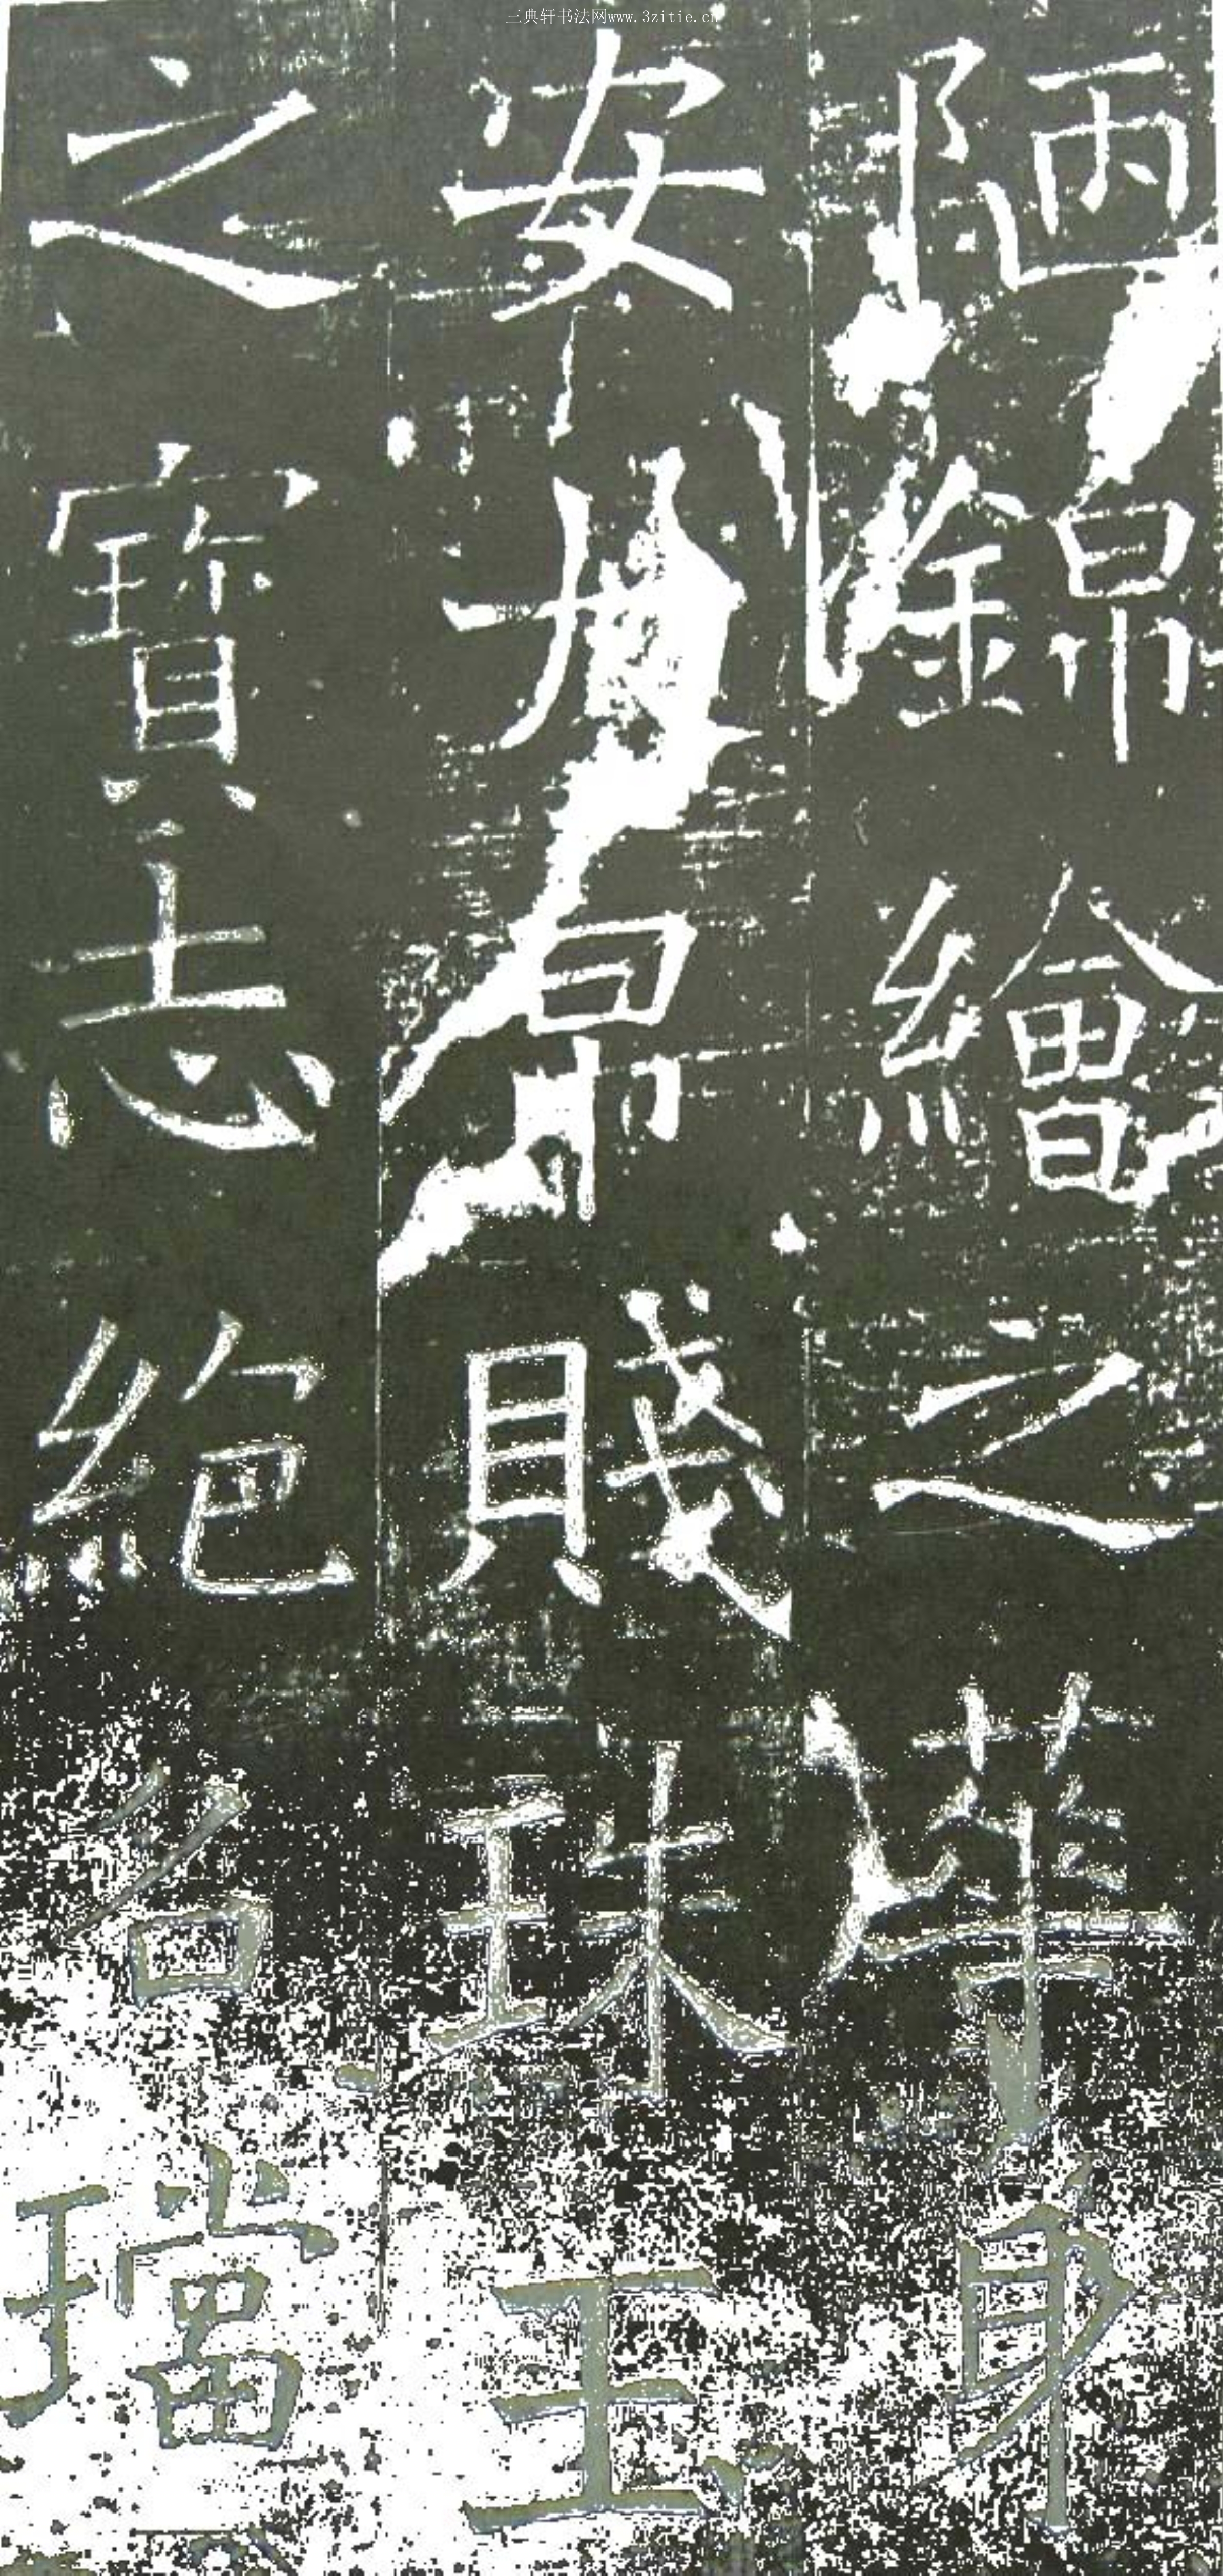 三典轩书法网www.3zitie.cn
陋錦繪之華身
安大帛賤珠玉
之寶志絕名璫